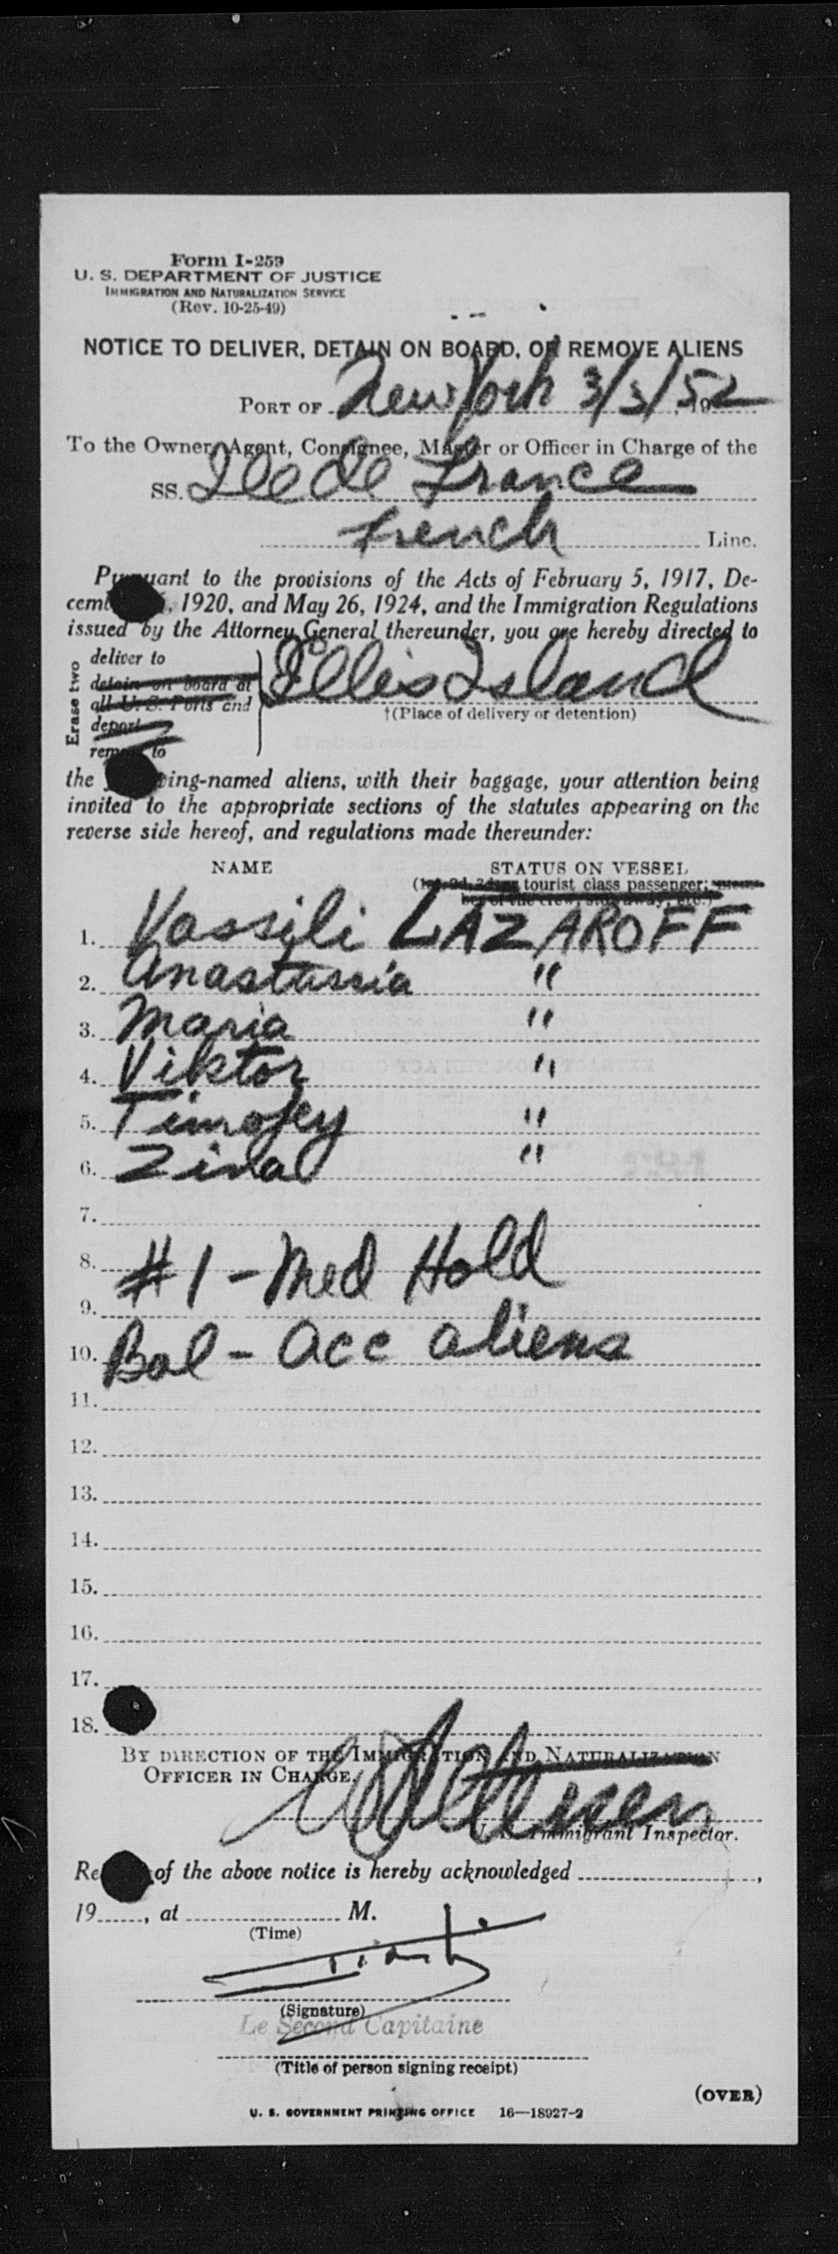 Form I-259
U. S. DEPARTMENT OF JUSTICE
IMMIGRATION AND NATURALIZATION SERVICE
(Rev. 10-25-49)
NOTICE TO DELIVER, DETAIN ON BOARD, OR REMOVE ALIENS
PORT OF New York 3/3/52, 19
To the Owner, Agent, Consignee, Master or Officer in Charge of the
SS. Ile de France
French Line.
Pursuant to the provisions of the Acts of February 5, 1917, De-
cember 1920, and May 26, 1924, and the Immigration Regulations
issued by the Attorney General thereunder, you are hereby directed to
Erase two
deliver to
detain on board at
all U. S. Ports and
deport
remove to
Ellis Island
†(Place of delivery or detention)
the following-named aliens, with their baggage, your attention being
invited to the appropriate sections of the statutes appearing on the
reverse side hereof, and regulations made thereunder:
NAME STATUS ON VESSEL
tourist class passenger;
1. Vassili LAZAROFF
2. Anastassia "
3. Maria "
4. Viktor "
5. Timofey "
6. Zina "
7.
8. #1 - Med Hold
9.
10. Bal - Acc aliens
11.
12.
13.
14.
15.
16.
17.
18.
BY DIRECTION OF THE IMMIGRATION AND NATURALIZATION
OFFICER IN CHARGE,
U. S. Immigrant Inspector.
Receipt of the above notice is hereby acknowledged ,
19 , at M.
(Time)
(Signature)
Le Second Capitaine
(Title of person signing receipt)
(OVER)
U. S. GOVERNMENT PRINTING OFFICE 16—18927-2